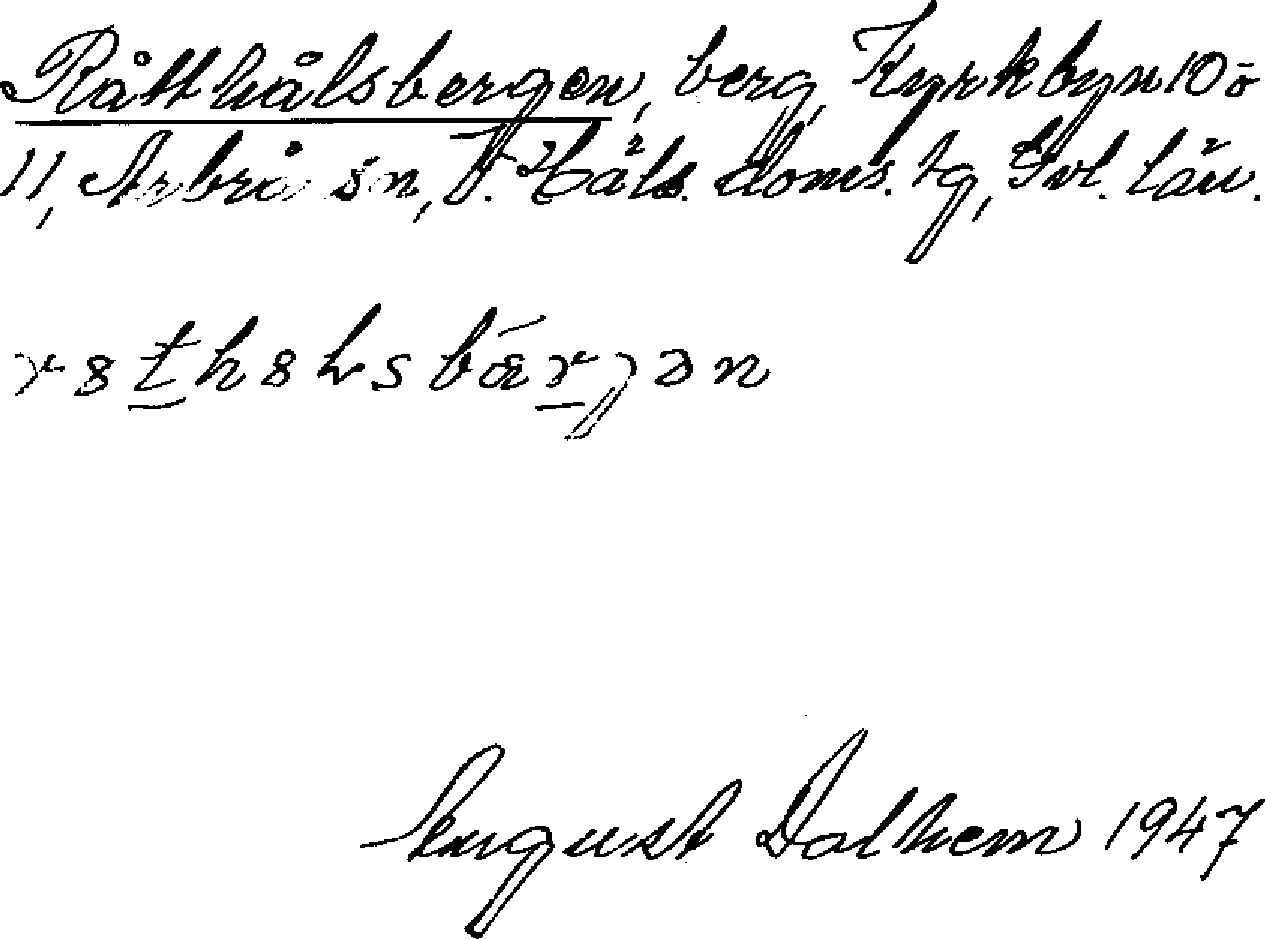 Råtthålsbergen, berg, Kyrkbyn 10 o
11, Arbrå sn, V. Häls. doms. tg, Gvl. län.
August Dalhem 1947